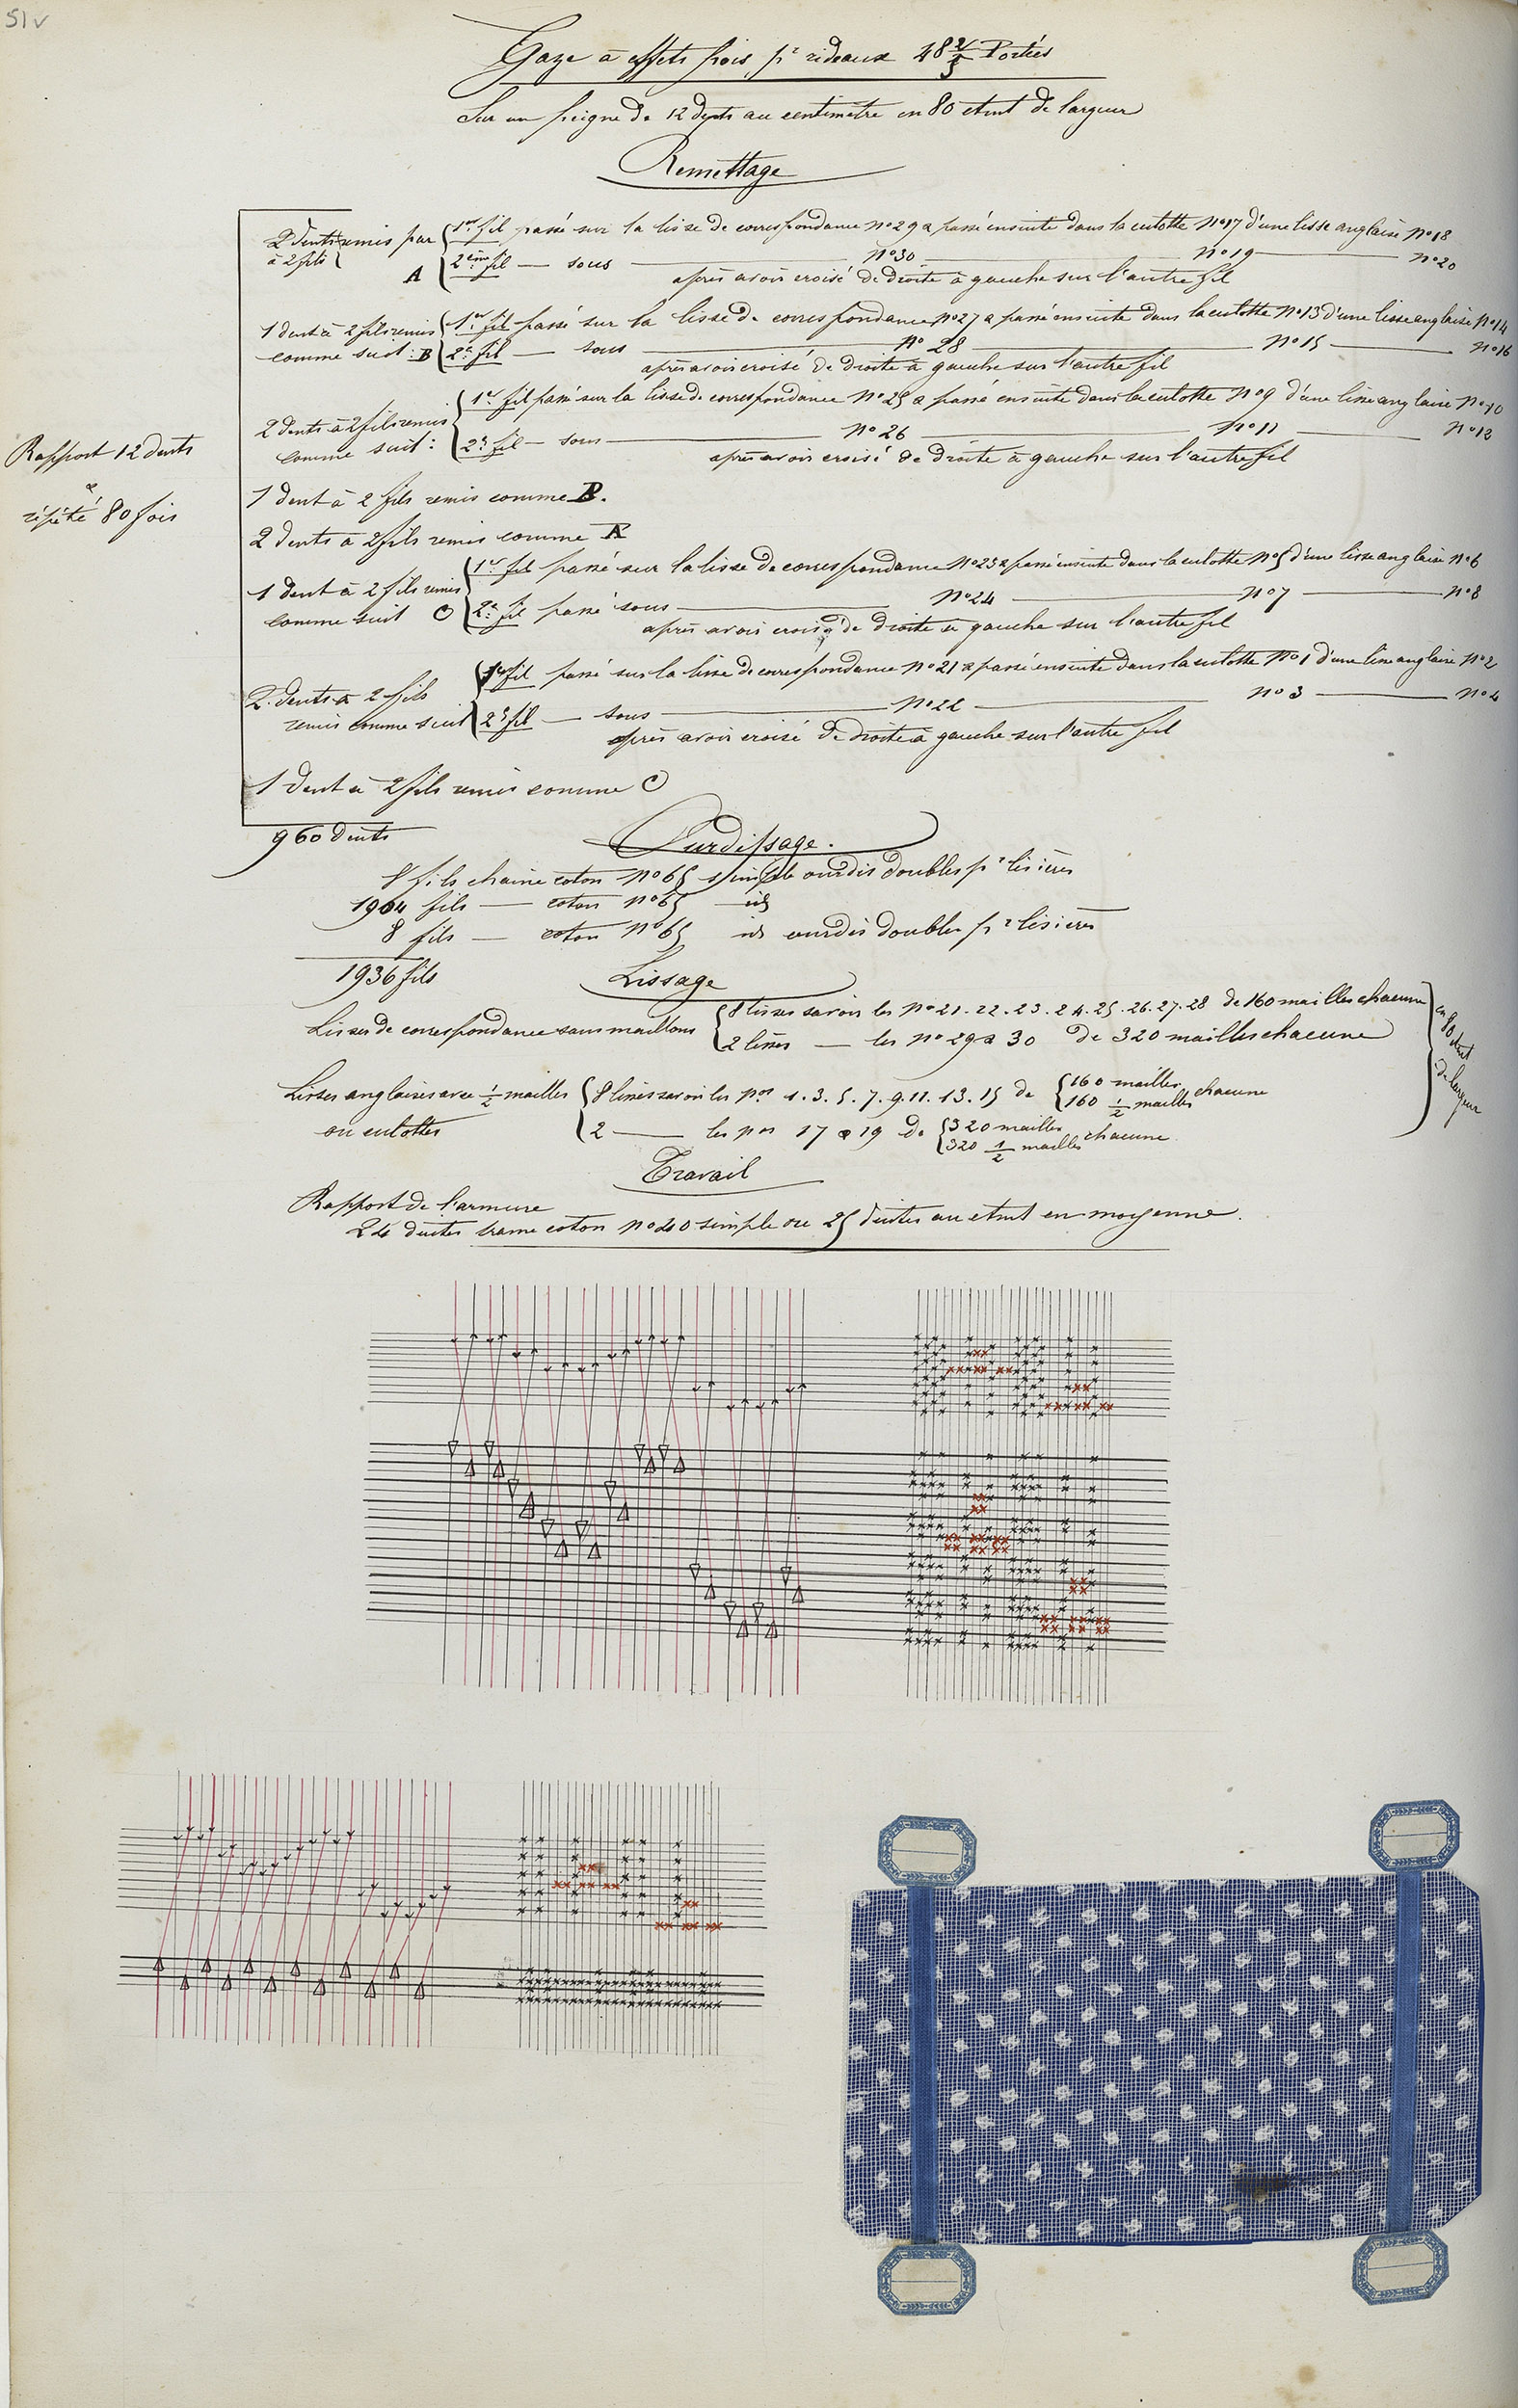 51v
Gaze à effets pois pr rideaux 48 2/5 Portées
Sur un peigne de 12 dents au centimètre en 80 ctmt de largeur
Remettage
2 dents remis par 1er fil passé sur la lisse de correspondance no 29 & passé ensuite dans la culotte no 17 d'une lisse anglaise no 18
à 2 fils A 2ème fil — sous — no 30 — no 19 — no 20
après avoir croisé de droite à gauche sur l'autre fil
1 dent à 2 fils remis 1er fil passé sur la lisse de correspondance no 27 & passé ensuite dans la culotte no 13 d'une lisse anglaise no 14
comme suit : B 2e fil — sous — no 28 — no 15 — no 16
après avoir croisé de droite à gauche sur l'autre fil
2 dents à 2 fils remis 1er fil passé sur la lisse de correspondance no 25 & passé ensuite dans la culotte no 9 d'une lisse anglaise no 10
comme suit : 2e fil — sous — no 26 — no 11 — no 12
après avoir croisé de droite à gauche sur l'autre fil
Rapport 12 dents
&
répété 80 fois
1 dent à 2 fils remis comme B.
2 dents à 2 fils remis comme A
1 dent à 2 fils remis 1er fil passé sur la lisse de correspondance no 23 & passé ensuite dans la culotte no 5 d'une lisse anglaise no 6
comme suit C 2e fil passé sous — no 24 — no 7 — no 8
après avoir croisé de droite à gauche sur l'autre fil
2 dents à 2 fils 1er fil passé sur la lisse de correspondance no 21 & passé ensuite dans la culotte no 1 d'une lisse anglaise no 2
remis comme suit 2e fil — sous — no 22 — no 3 — no 4
après avoir croisé de droite à gauche sur l'autre fil
1 dent à 2 fils remis comme C
960 dents
Ourdissage.
8 fils chaine coton no 65 simple ourdis doubles pr lisières
1904 fils — coton no 65 — id
8 fils — coton no 65 id ourdis doubles pr lisières
1936 fils
Lissage
Lisses de correspondance sans maillons 8 lisses savoir les no 21. 22. 23. 24. 25. 26. 27. 28 de 160 mailles chacune
2 lisses — les no 29 & 30 de 320 mailles chacune
en 80 ctmt de largeur
Lisses anglaises avec 1/2 mailles 8 lisses savoir les nos 1. 3. 5. 7. 9. 11. 13. 15 de 160 mailles 160 1/2 mailles chacune
ou culottes 2 — les nos 17 & 19 de 320 mailles 320 1/2 mailles chacune
Travail
Rapport de l'armure
24 duites trame coton no 40 simple ou 25 duites au ctmt en moyenne.